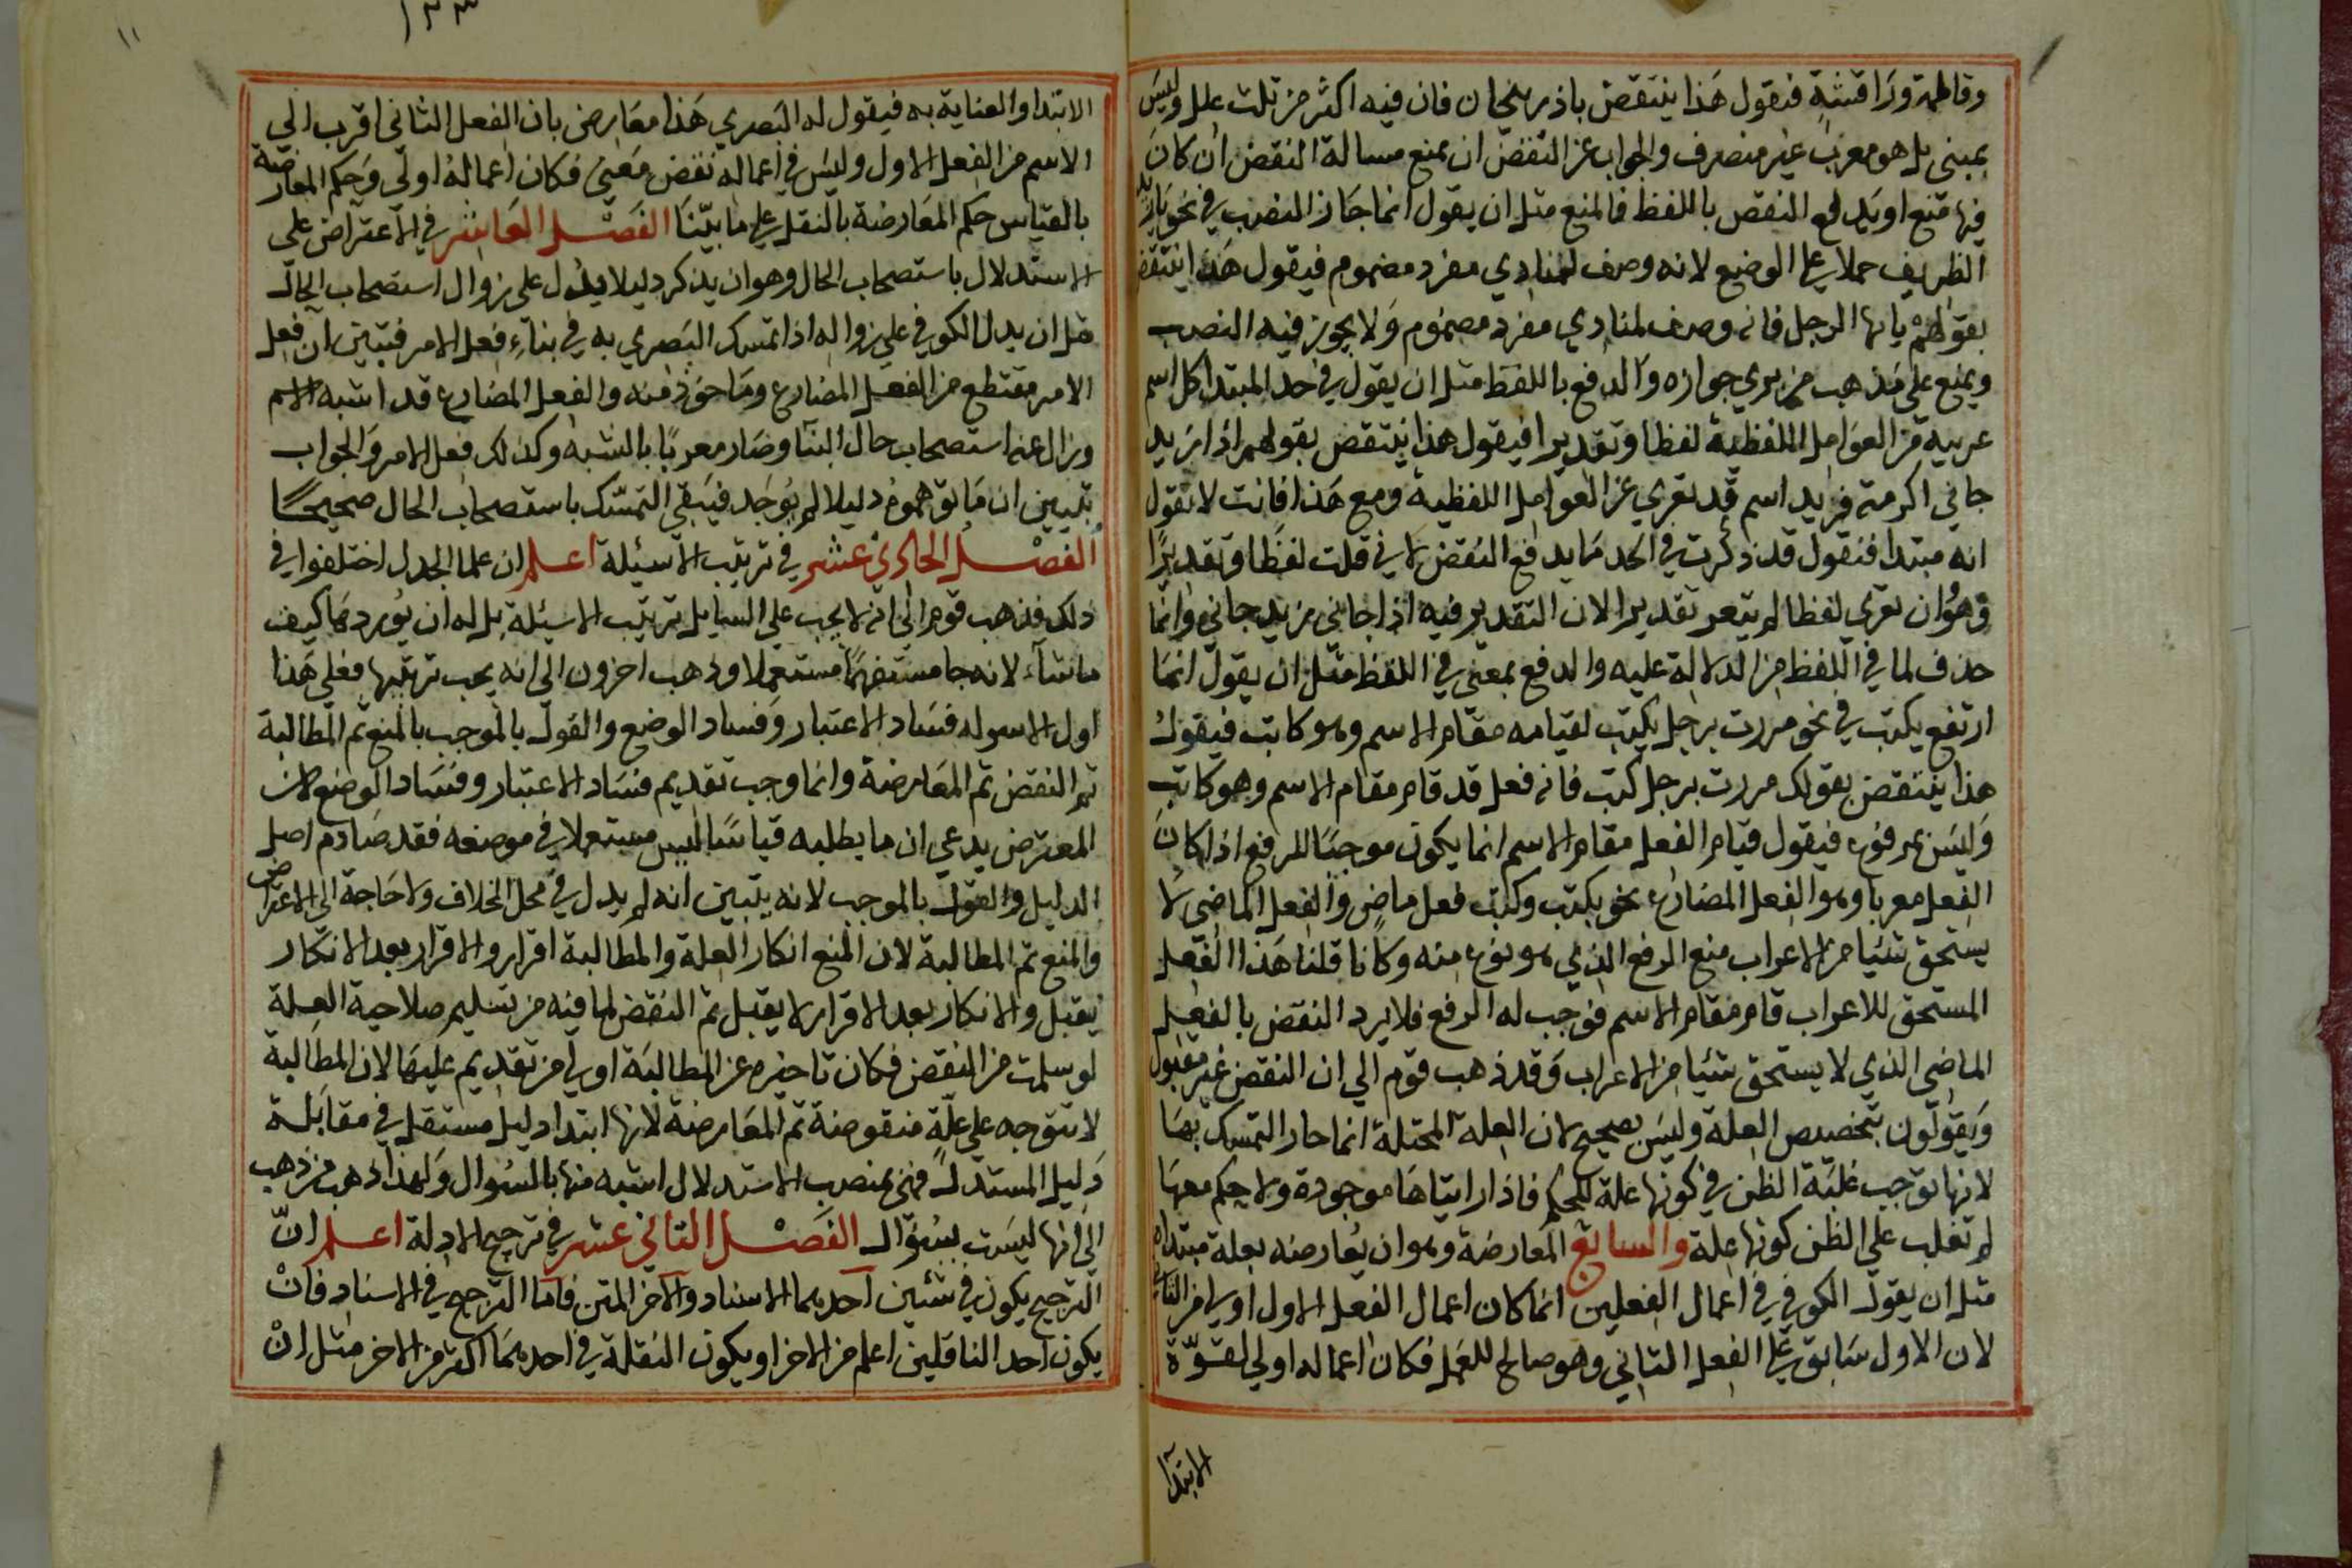 وقاطمه ورقاشه فنقول هذا ينتقض باذربيجان فان فيه اكثر من ثلث علل وليس
بمبنى بل هو معرب غير منصرف والجواب عن النقض ان يمنع مسالة النقض ان كان
فيها منع او يدفع النقص باللفظ فالمنع مثل ان يقول انما جاز النصب في نحو يازيد
الظريف حملا على الوضع لانه وصف لمنادي مفرد مضموم فيقول هذا ينتقض
بقولهم يايها الرجل فانه وصف لمنادي مفرد مضموم ولا يجوز فيه النصب
ويمنع على مذهب من يري جوازه والدفع باللفظ مثل ان يقول في حد المبتدا كل اسم
عريبه من العوامل اللفظية لفظا وتقديرا فيقول هذا ينتقض بقولهم اذا زيد
جاني اكرمته فزيد اسم قد تعري عن العوامل اللفظية ومع هذا فانت لا تقول
انه مبتدا فنقول قد ذكرت في الحد ما يدفع النقض لاني قلت لفظا وتقديرا
وهو ان تعري لفظا لم يتعر تقديرا لان التقدير فيه اذا جاني زيد جاني وانما
حذف لما في اللفظ من الدلالة عليه والدفع بمعنى في اللفظ مثل ان يقول انما
ارتفع يكتب في نحو مررت برجل يكتب لقيامه مقام الاسم وهو كاتب فيقول
هذا ينتقض بقولك مررت برجل كتب فانه فعل قد قام مقام الاسم وهو كاتب
وليس بمرفوع فيقول قيام الفعل مقام الاسم انما يكون موجبًا للرفع اذا كان
الفعل معربا وهو الفعل المضارع نحو يكتب وكتب فعل ماض والفعل الماضي لا
يستحق شيئا من الاعراب منع الرفع الذي هو نوع منه وكانا قلنا هذا الفعل
المستحق للاعراب قام مقام الاسم فوجب له الرفع فلا يرد النقض بالفعل
الماضي الذي لا يستحق شيئا من الاعراب وقد ذهب قوم الي ان النقض غير مقبول
ويقولون بتخصيص العلة وليس بصحيح لان العلة المحتلة انما حاز التمسك بها
لانها توجب غلبة الظن في كونها علة للحكم فاذا رايتاها موجودة ولا حكم معها
لم تغلب علي الظن كونها علة والسابع المعارضة وهو ان يعارضه بعلة مبتداه
مثل ان يقول الكوفي في اعمال الفعلين انما كان اعمال الفعل الاول اولي من الثاني
لان الاول سابق على الفعل الثاني وهو صالح للعمل فكان اعماله اولي لقوّة
الابتدا
١١
١٣٣
الابتدا والعناية به فيقول له البصري هذا معارض بان الفعل الثاني اقرب الي
الاسم من الفعل الاول وليس في اعماله نقض معنى فكان اعماله اولي وحكم المعارضة
بالقياس حكم المعارضة بالنقل على ما بيّنا الفصل العاشر في الاعتراض على
الاستدلال باستصحاب الحال وهو ان يذكر دليلا يدل على زوال استصحاب الحال
مثل ان يدل الكوفي على زواله اذا تمسك البصري به في بناء فعل الامر فتبين ان فعل
الامر مقتطع من الفعل المضارع وماخوذ منه والفعل المضارع قد اشبه الاسم
وزال عنه استصحاب حال البنا وصار معربا بالشبه وكذلك فعل الامر والجواب
بتبيين ان ما توهموه دليلا لم يوجد فيبقى التمسّك باستصحاب الحال صحيحًا
الفصل الحادي عشر في ترتيب الاسئلة اعلم ان علما الجدل اختلفوا في
ذلك فذهب قوم الي انه لا يجب على السايل ترتيب الاسئلة بل له ان يوردها كيف
ماشآء لانه جا مستفهمًا مستعملا وذهب اخرون الى انه يجب ترتيبها فعلي هذا
اول الاسوله فساد الاعتبار وفساد الوضع والقول بالموجب بالمنع ثم المطالبة
ثم النقض ثم المعارضة وانما وجب تقديم فساد الاعتبار وفساد الوضع لان
المعترض يدعي ان ما يطلبه قياسًا ليس مستعملا في موضعه فقد صادم اصل
الدليل والقول بالموجب لانه يتبين انه لم يدل في محل الخلاف ولا حاجة الى الاعتراض
والمنع ثم المطالبة لان المنع انكار العلة والمطالبة اقرار والاقرار بعد الانكار
يقبل والانكار بعد الاقرار لا يقبل ثم النقض لما فيه من تسليم صلاحية العلة
لو سلمت من النقض فكان تاخيره عن المطالبة اولي من تقديم عليها لان المطالبة
لا تتوجه على علّة منقوضة ثم المعارضة لانها ابتدا دليل مستقل في مقابلة
دليل المستدل فهي بمنصب الاستدلال اشبه منها بالسوال ولهذا ذهب من ذهب
الى انها ليست بسؤال الفصل الثاني عشر في ترجيح الادلة اعلم انّ
الترجيح يكون في شئين احدهما الاسناد والآخر المتن فاما الترجيح في الاسناد فان
يكون احد الناقلين اعلم من الاخر او يكون النقلة في احدهما اكثر من الاخر مثل ان